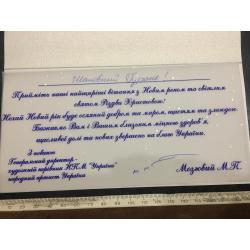 Шановний
Прийміть наші найщиріші вітання з Новим роком та світлим
святом Різдва Христового!
Нехай Новий рік буде осяяний добром та миром, щастям та злагодою.
Бажаємо Вам і Вашим близьким міцного здоров'я,
щасливої долі та нових звершень на благо України.
З повагою
Генеральний директор-
художній керівник НПМ "Україна"
народний артист України
Мозговий М.П.